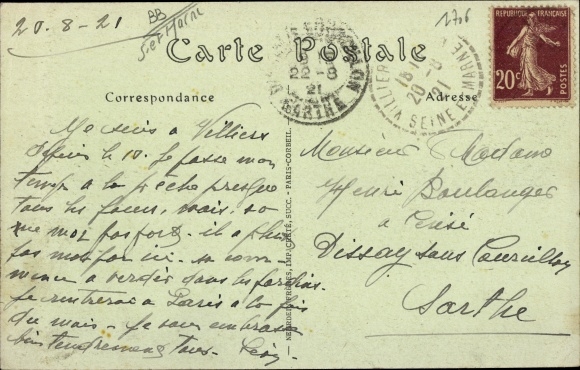 20.8-21
BB
1706
Carte Postale
RÉPUBLIQUE FRANÇAISE
20c
POSTES
22-8
21
SARTHE
VILLIERS
20-8
21
SEINE ET MARNE
Correspondance
Adresse
Me suis à Villiers
depuis le 10. Je passe mon
temps a la pêche presque
tous les jours, mais
pas fort. il a plu
pas mal par ici. sa com
mence a verdir dans les jardins.
Je rentrerai à Paris a la fin
du mois. Je vous embrasse
bien tendrement tous. Léon
Monsieur Madame
Henri Boulanger
a
Dissay sous Courcillon
Sarthe
NEURDEIN FRÈRES, IMP. CRÉTÉ, SUCC. - PARIS-CORBEIL.